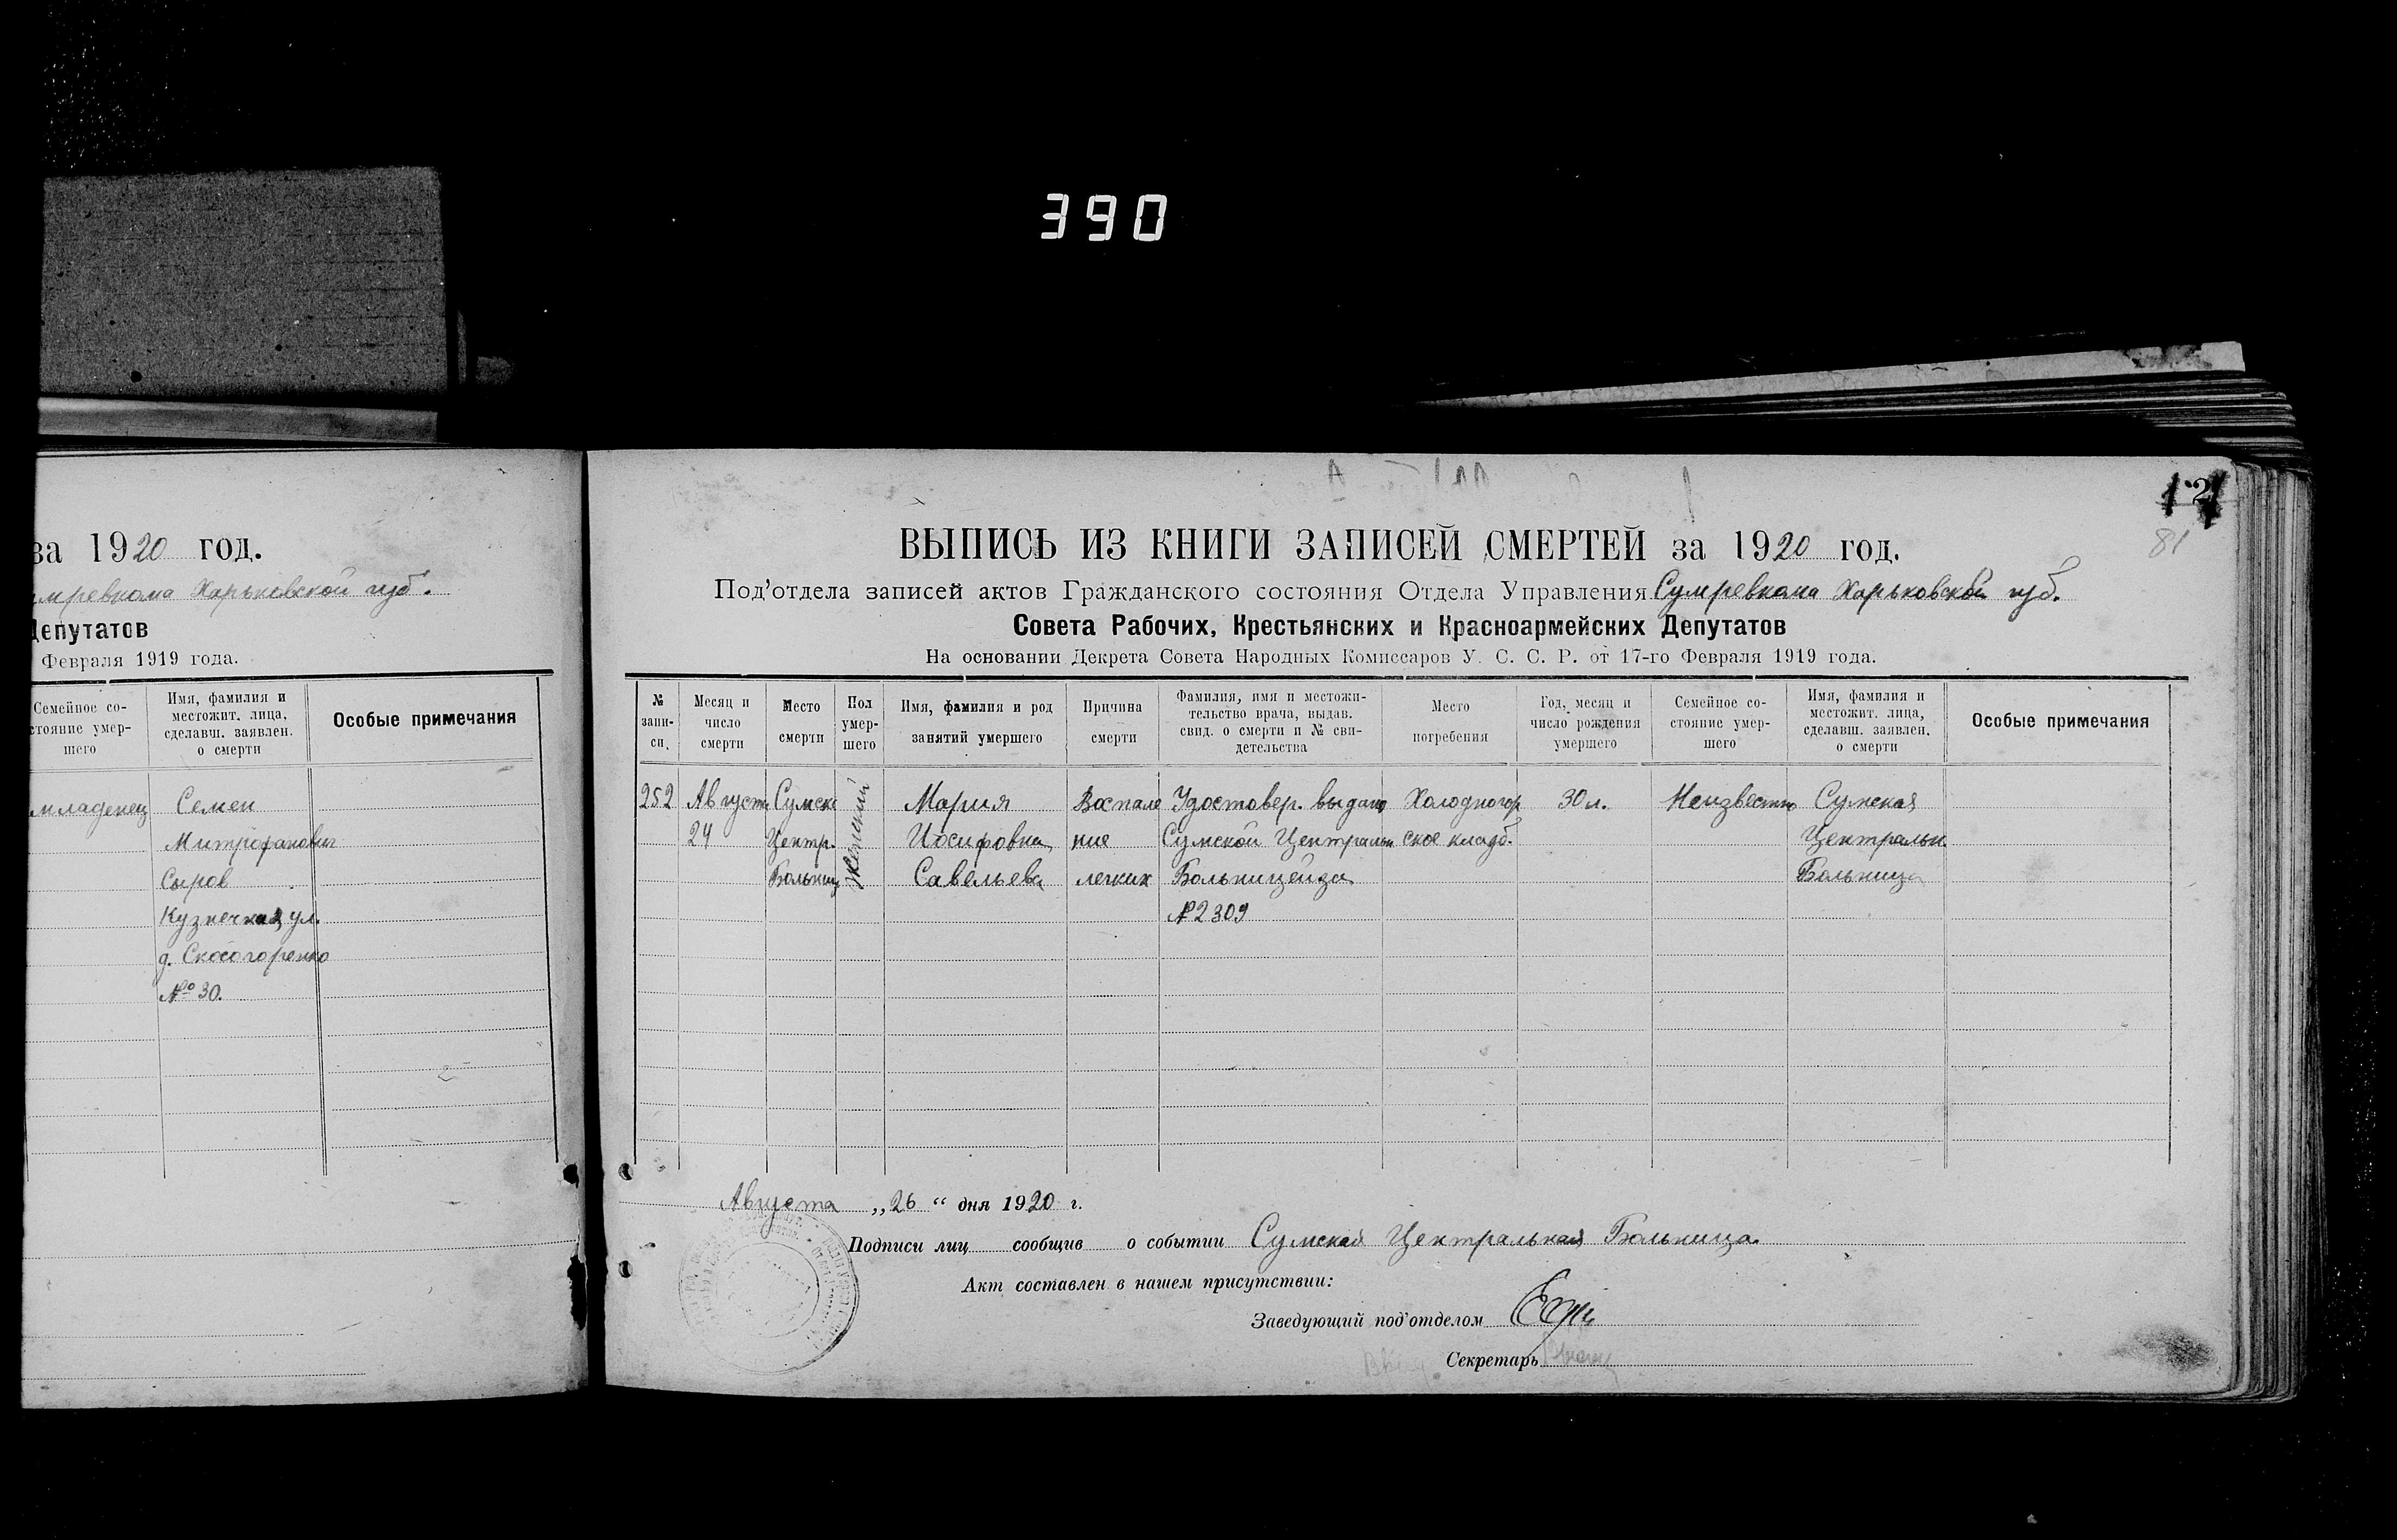 390
за 1920 год.
Харьковской губ.
Депутатов
Февраля 1919 года.
Семейное со-
стояние умер-
шего
Имя, фамилия и
местожит. лица,
сделавш. заявлен.
о смерти
Особые примечания
младенец
Семен
Митрофанович
Сыров
Кузнечная ул.
д.
№ 30.
81
ВЫПИСЬ ИЗ КНИГИ ЗАПИСЕЙ СМЕРТЕЙ за 1920 год.
Под'отдела записей актов Гражданского состояния Отдела Управления Сумревкома Харьковской губ.
Совета Рабочих, Крестьянских и Красноармейских Депутатов
На основании Декрета Совета Народных Комиссаров У. С. С. Р. от 17-го Февраля 1919 года.
№
запи-
си.
Месяц и
число
смерти
Место
смерти
Пол
умер-
шего
Имя, фамилия и род
занятий умершего
Причина
смерти
Фамилия, имя и местожи-
тельство врача, выдав.
свид. о смерти и № сви-
детельства
Место
погребения
Год, месяц и
число рождения
умершего
Семейное со-
стояние умер-
шего
Имя, фамилия и
местожит. лица,
сделавш. заявлен.
о смерти
Особые примечания
252
Августа
24
Сумск
Центр.
Больниц
женский
Мария
Иосифовна
Савельева
Воспале
ние
легких
Удостовер. выдано
Сумской Центральн
Больницей за
№ 2309
Холодногор
ское кладб.
30 л.
Неизвестно
Сумская
Центральн.
Больница
Августа „26“ дня 1920 г.
Подписи лиц сообщив о событии Сумская Центральная Больница.
Акт составлен в нашем присутствии:
Заведующий под'отделом
Секретарь